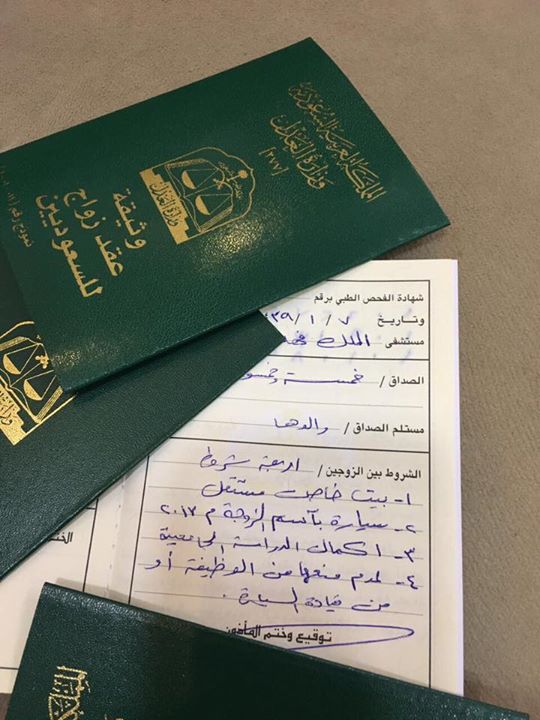 المملكة العربية السعودية
وزارة العدل
[٢٧٧]
وثيقة
عقد زواج
للسعوديين
شهادة الفحص الطبي برقم
وتاريخ ٧ / ١ / ٣٩
مستشفى الملك
الصداق / خمسة
مستلم الصداق / والدها
الشروط بين الزوجين / اربعة شروط
١- بيت خاص مستقل
٢- سيارة بآسم الزوجة م ٢٠١٧
٣- اكمال الدراسة الجامعية
٤- لعدم منعها من الوظيفة أو
من قيادة السيارة .
توقيع وختم المأذون